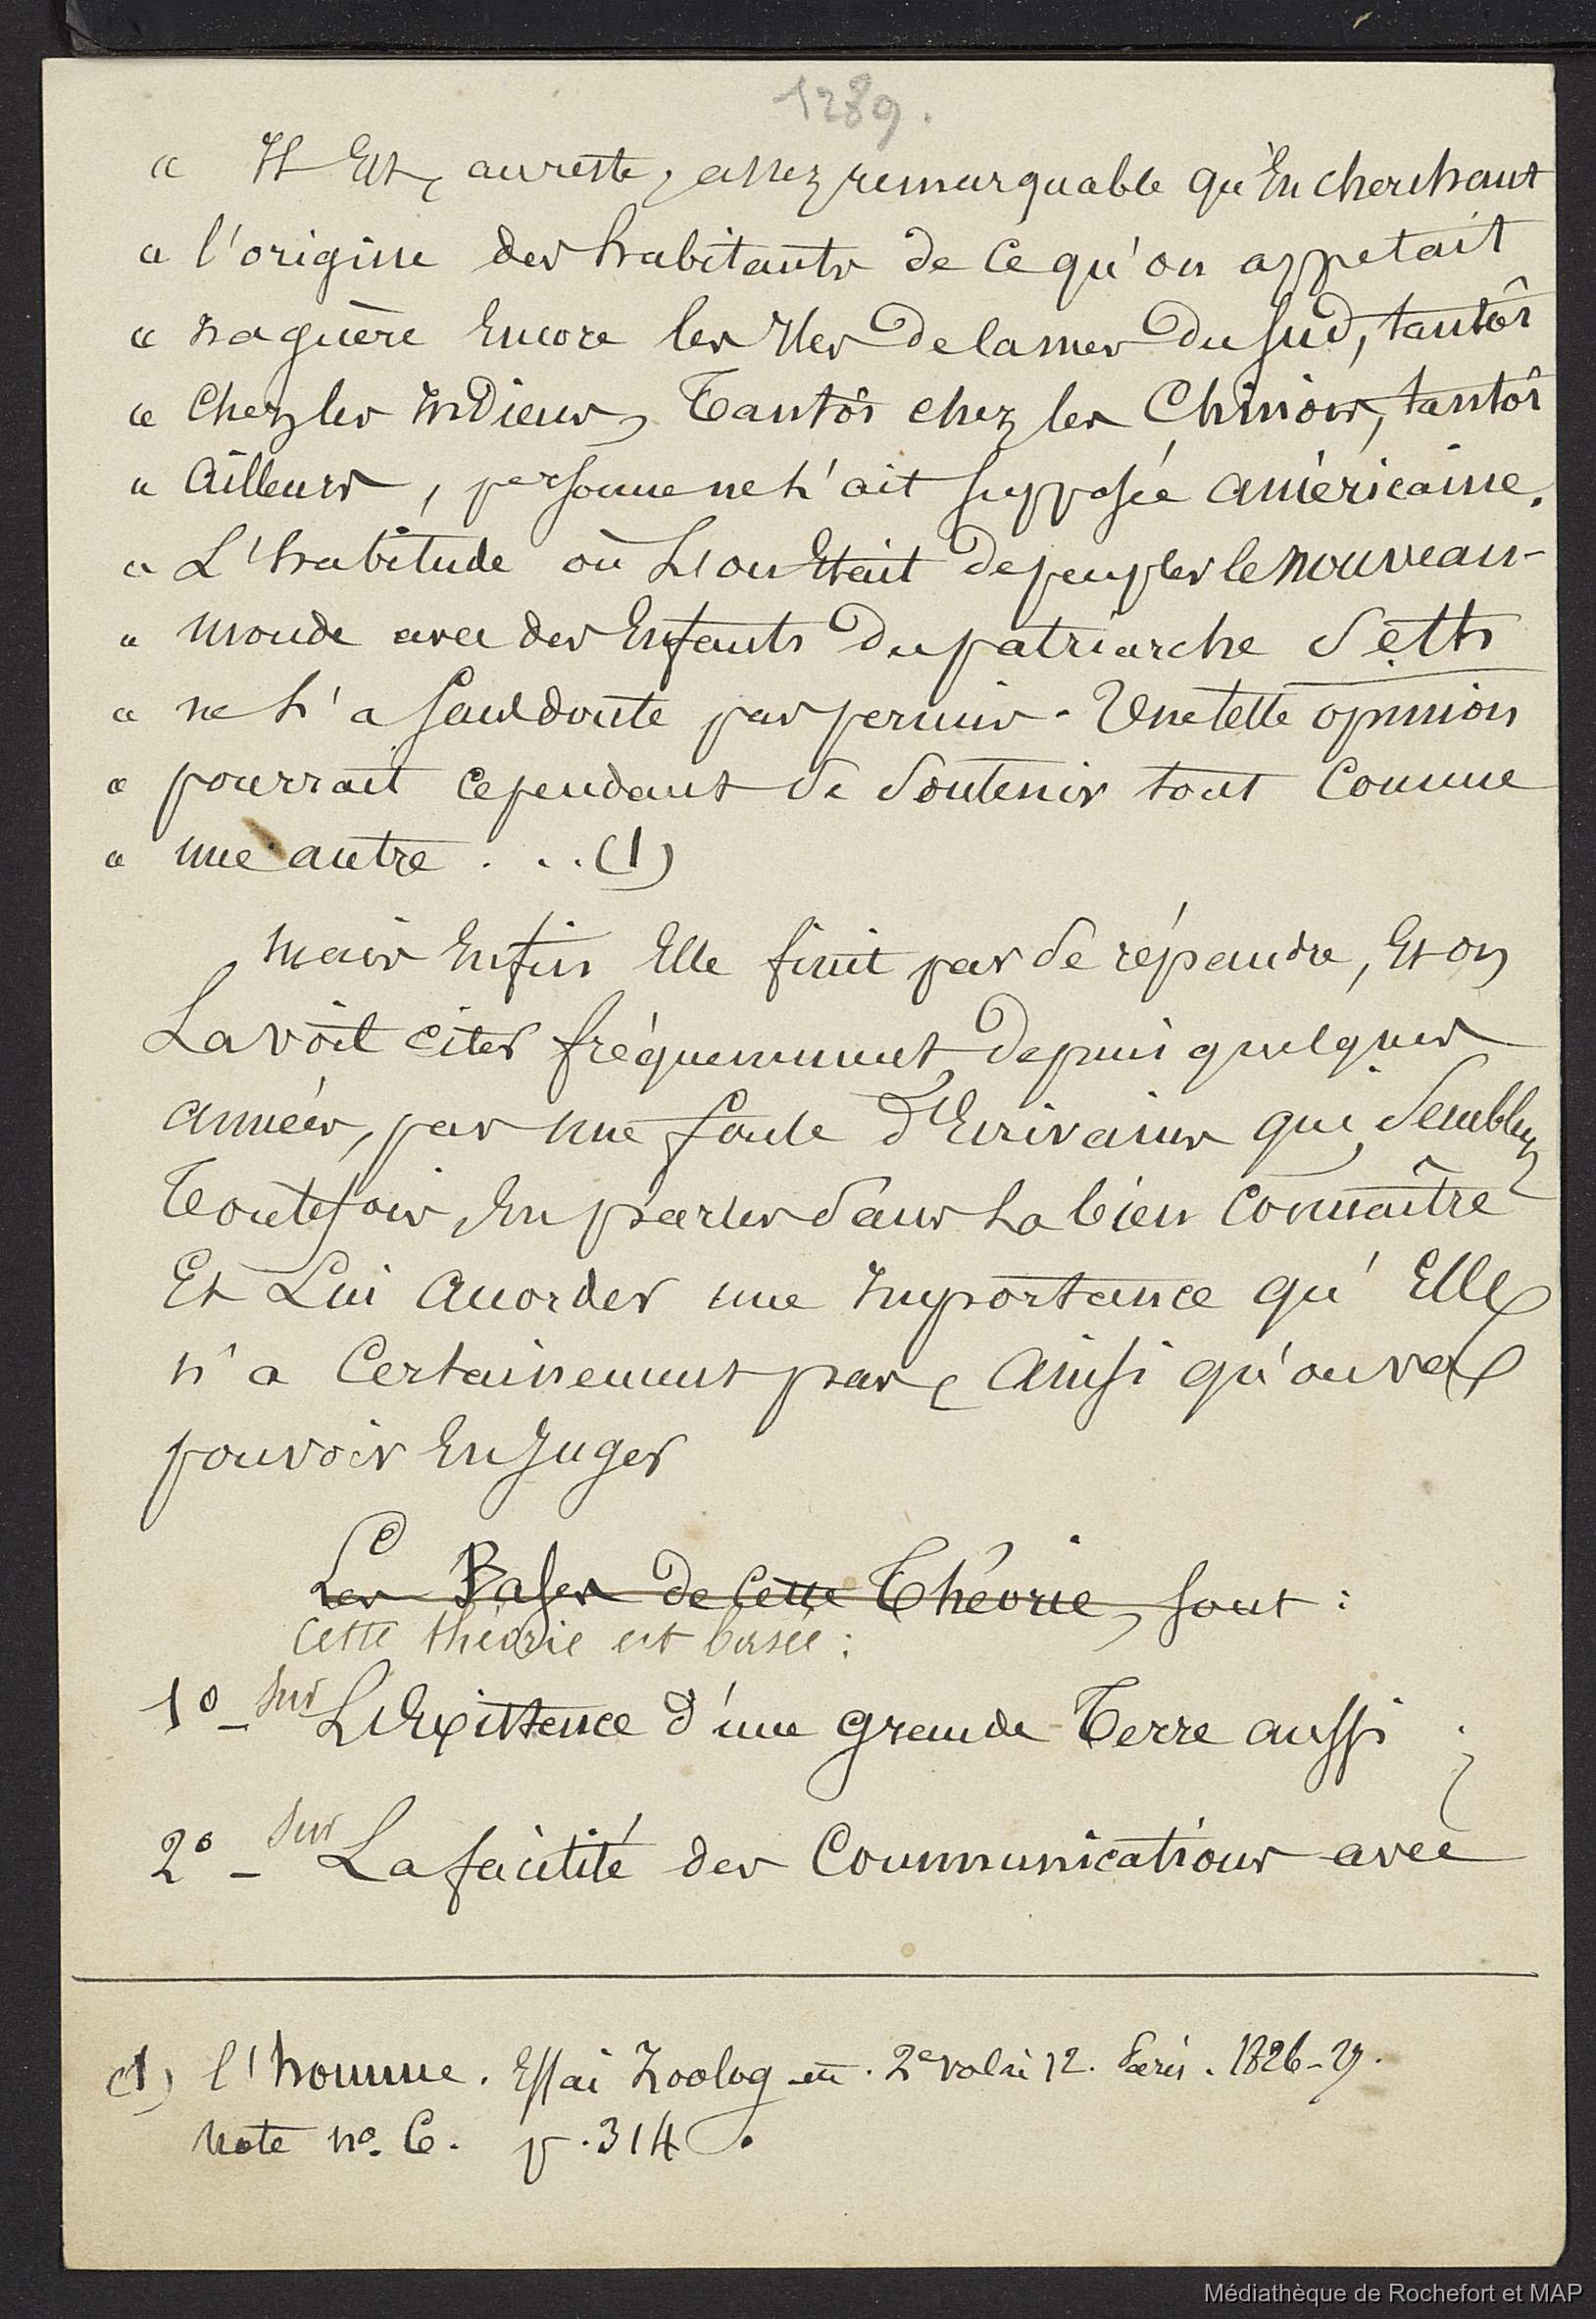 1289.
" Il Est, au reste, assez remarquable qu'En cherchant
" l'origine des habitants de ce qu'on appelait
" naguère Encore les Iles de la mer du Sud, tantôt
" Chez les Indiens, Tantôt chez les Chinois, tantôt
" Ailleurs, personne ne l'ait supposée américaine.
" L'habitude où L'on Etait de peupler le nouveau-
" monde avec des Enfants du patriarche Seth
" ne l'a sans doute pas permis - Une telle opinion
" pourrait cependant se soutenir tout comme
" une autre . . . (1)
Mais Enfin Elle finit par se répandre, Et on
La voit citer fréquemment, depuis quelques
années, par une foule d'Ecrivains qui semblent
Toutefois En parler sans La bien connaître
Et Lui accorder une Importance qu'Elle
n'a Certainement pas, Ainsi qu'on va
pouvoir En Juger
Les Bases de Cette Théorie, sont :
Cette théorie est basée :
1º - sur L'Existence d'une grande Terre aussi ;
2º - sur La facilité des Communications avec
(1) l'homme. Essai Zoolog. 2e vol in 12. Paris. 1826-27.
Note nº. C. p. 314.
Médiathèque de Rochefort et MAP